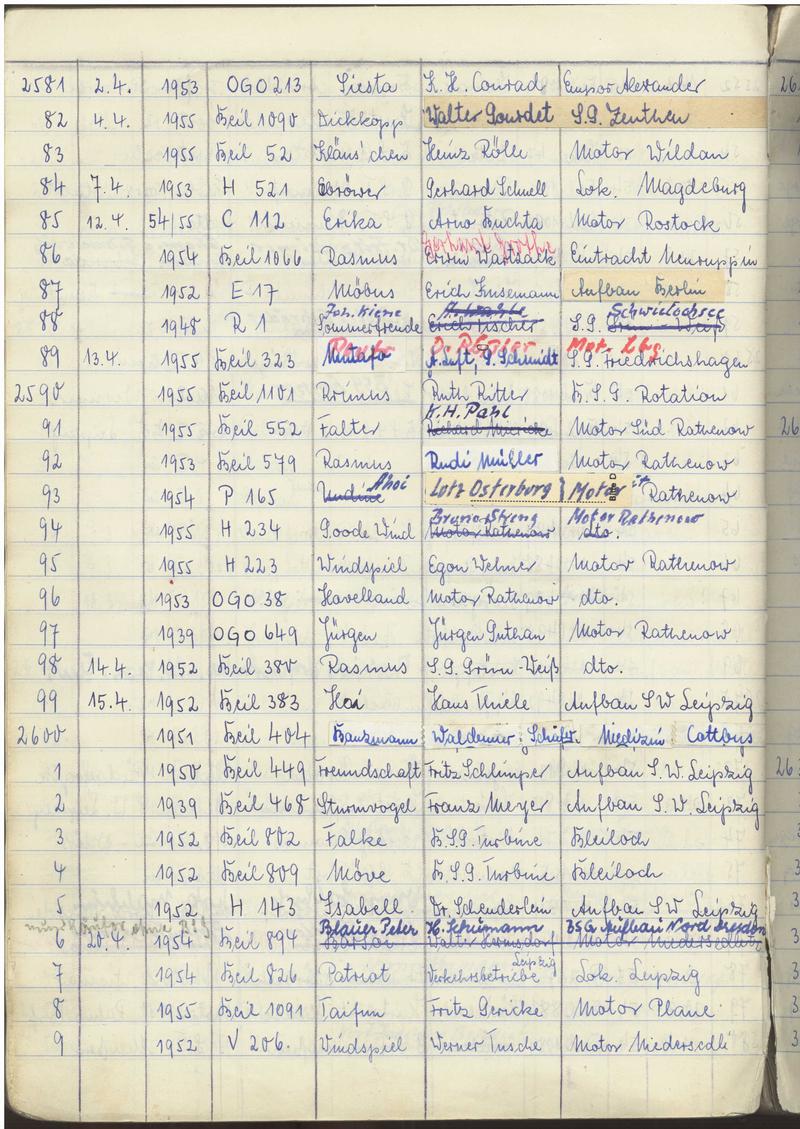 2581 2.4. 1953 OGO 213 Siesta K. H. Conrad Empor Alexander
82 4.4. 1955 Beil 1090 Dickkopp Walter Gourdet S.G. Zeuthen
83 1955 Beil 52 Kläus'chen Heinz Rölle Motor Wildau
84 7.4. 1953 H 521 Gerhard Schnell Lok. Magdeburg
85 12.4. 54/55 C 112 Erika Arno Buchta Motor Rostock
86 1954 Beil 1066 Rasmus Erwin Wartsack Eintracht Neuruppin
87 1952 E 17 Möbus Erich Insemann Aufbau Berlin
Joh. Kiene Schwielochsee
88 1948 R 1 Sommerfreude Erich Fischer S.G. Grün-Weiß
Mot. Lbg.
89 13.4. 1955 Beil 323 A. Luft, G. Schmidt S.G. Friedrichshagen
2590 1955 Beil 1101 Primus Ruth Ritter B.S.G. Rotation
K.H. Pahl
91 1955 Beil 552 Falter Richard Motor Süd Rathenow
92 1953 Beil 579 Rasmus Rudi Müller Motor Rathenow
Ahoi
93 1954 P 165 Undine Lotz Osterburg Motor Rathenow
Bruno Streng Motor Rathenow
94 1955 H 234 Goode Wind Motor Rathenow dto.
95 1955 H 223 Windspiel Egon Wehner Motor Rathenow
96 1953 OGO 38 Havelland Motor Rathenow dto.
97 1939 OGO 649 Jürgen Jürgen Guthan Motor Rathenow
98 14.4. 1952 Beil 380 Rasmus S.G. Grün-Weiß dto.
99 15.4. 1952 Beil 383 Hai Hans Thiele Aufbau SW Leipzig
2600 1951 Beil 404 Waldemar Schäfr. Medizin Cottbus
1 1950 Beil 449 Freundschaft Fritz Schlimper Aufbau S.W. Leipzig
2 1939 Beil 468 Sturmvogel Franz Meyer Aufbau S.W. Leipzig
3 1952 Beil 802 Falke B.S.G. Turbine Bleiloch
4 1952 Beil 809 Möve B.S.G. Turbine Bleiloch
5 1952 H 143 Isabell. Dr. Schenderlein Aufbau SW Leipzig
Blauer Peter H. Schumann BSG Aufbau Nord Dresden
6 20.4. 1954 Beil 894 Walter Motor Niedersedlitz
Leipzig
7 1954 Beil 826 Patriot Verkehrsbetriebe Lok. Leipzig
8 1955 Beil 1091 Taifun Fritz Gericke Motor Plane
9 1952 V 206. Windspiel Werner Tusche Motor Niedersedli